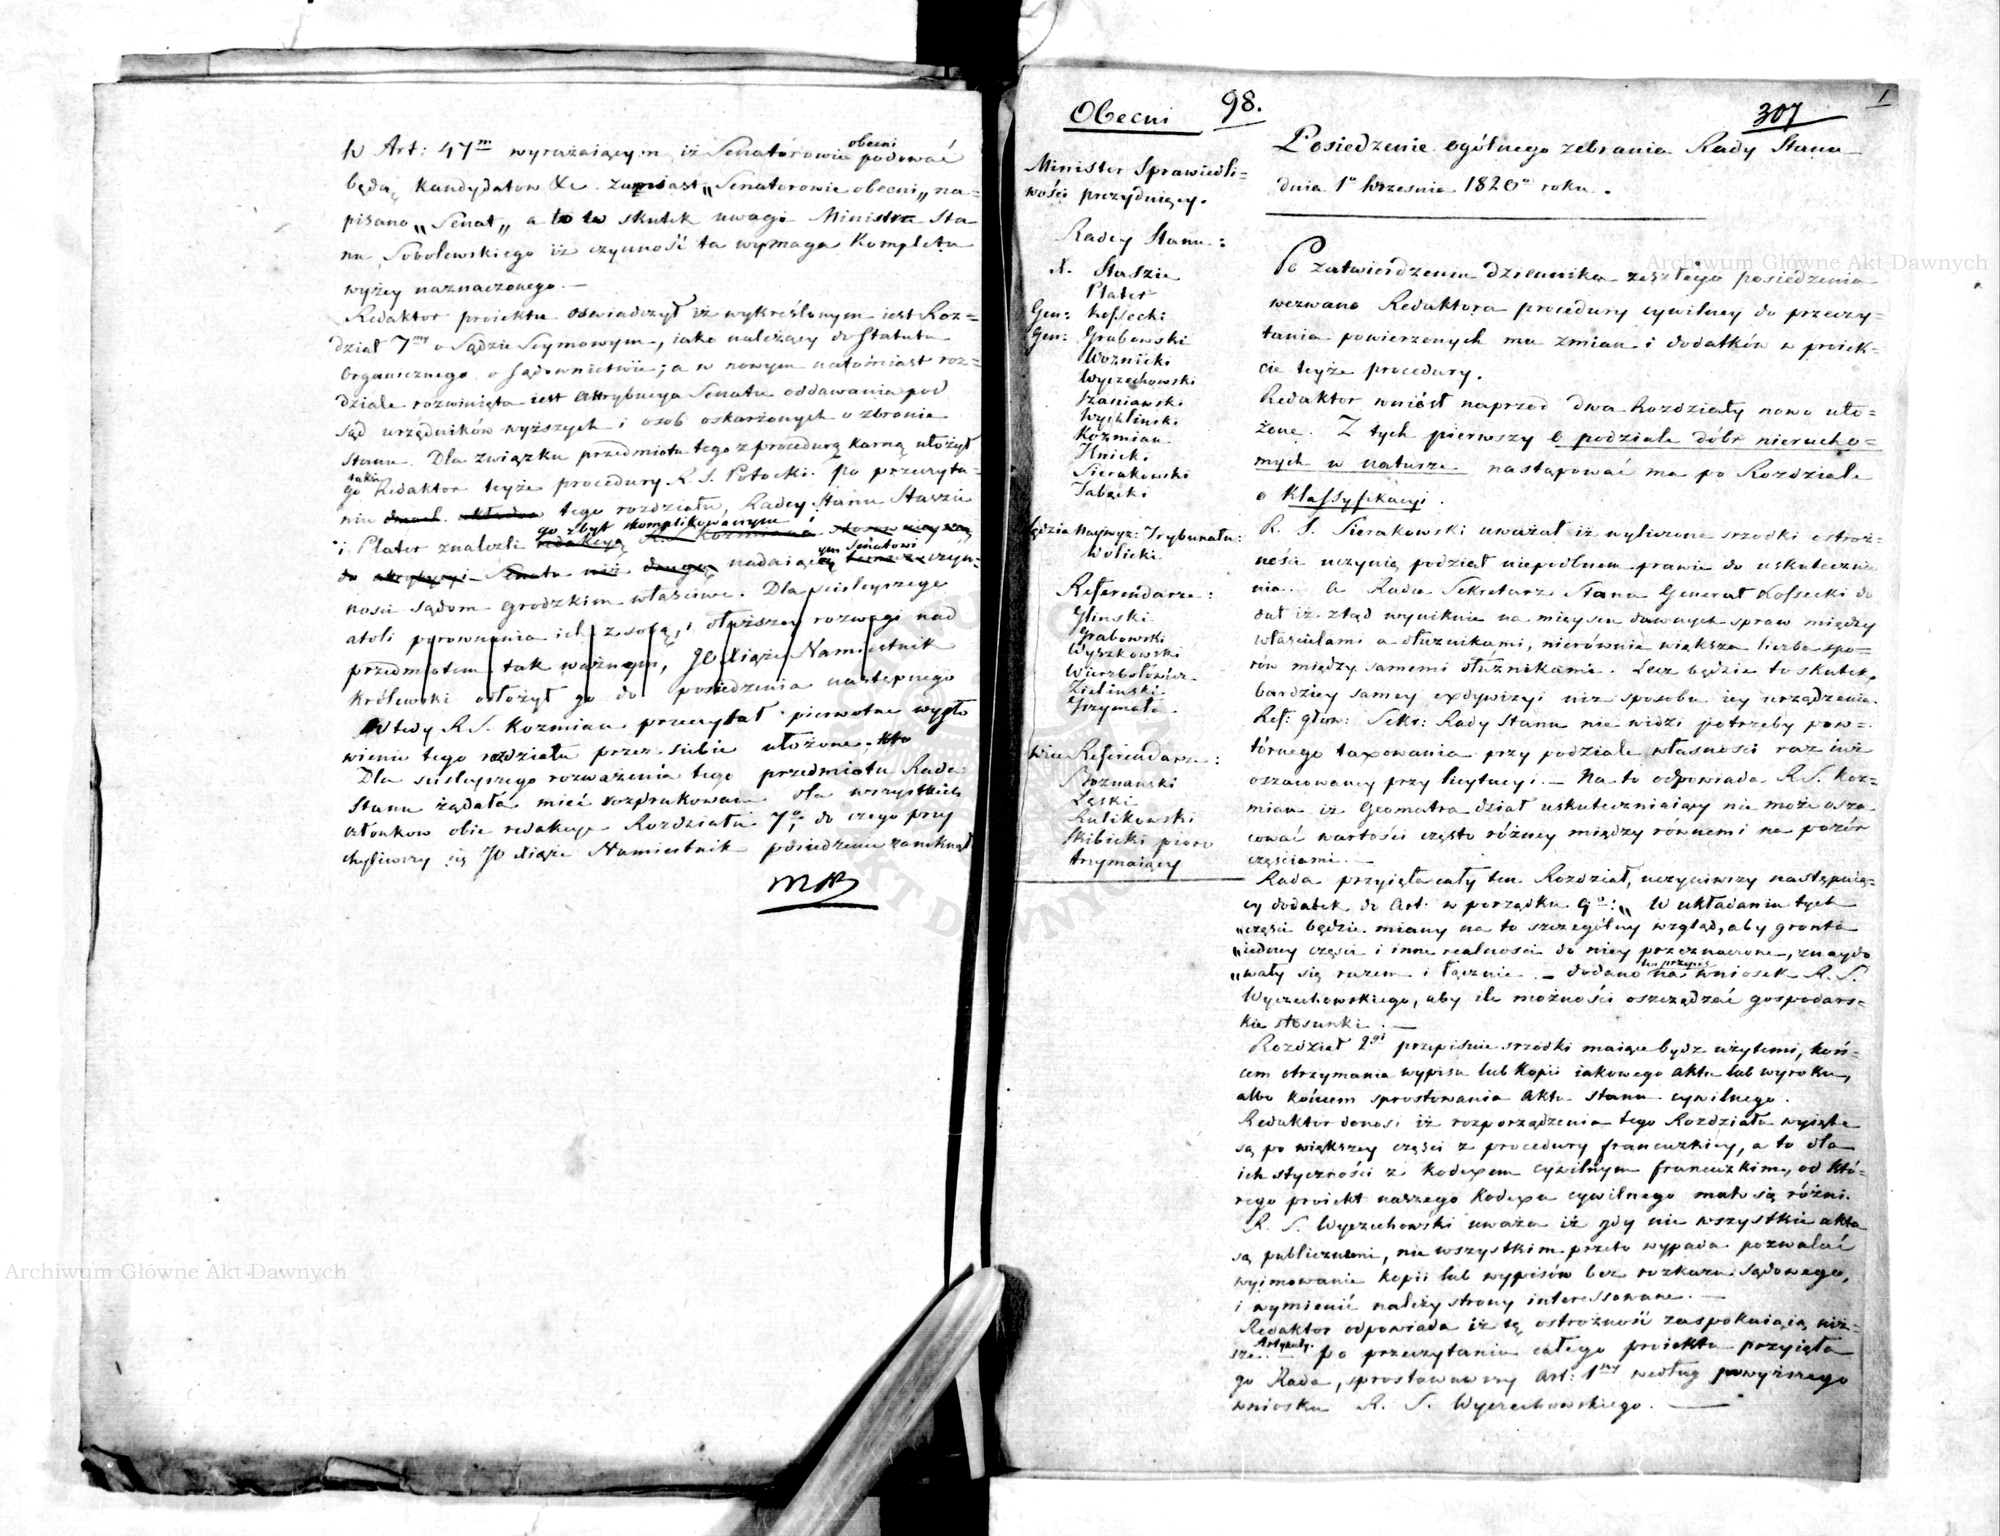 W Art: 47m wyrażaiącym iż Senatorowie obecni podować
będą kandydatów &c. zamiast „Senatorowie obecni„ na=
pisano „Senat„ a to w skutek uwagi Ministra Sta
nu Sobolewskiego iż czynność ta wymaga Kompletu
wyżey naznaczonego. —
Redaktor proiektu oświadczył iż wykreślonym iest Roz=
dział 7my o Sądzie Seymowym, iako należący do Statutu
Organicznego o Sądownictwie; a w nowym natomiast roz=
dziale rozwinięta iest attrybucya Senatu oddawania pod
sąd urzędników wyższych i osób oskarżonych o zbronie
Stanu. Dla związku przedmiotu tego z procedurą karną ułożył
go także Redaktor teyże procedury R. S. Potocki. Po przeczyta=
niu tego rozdziału, Radcy Stanu Staszic
i Plater znaleźli go zbyt skomplikowanym i
nadaiącym Senatowi czyn=
ności sądom Grodzkim właściwe. Dla ściśleyszego
atoli porównania ich z sobą, i dłuższey rozwagi nad
przedmiotem tak ważnym, JO Xiąże Namiestnik
Królewski odłożył go do posiedzenia następnego
Wtedy R. S. Kozmian przeczytał pierwotne wysło
wienie tego rozdziału przez siebie ułożone.
Dla ściśleyszego rozważenia tego przedmiotu Rada
Stanu żądała mieć rozdrukowane dla wszystkich
członków obie redakcye Rozdziału 7o, do czego przy
chyliwszy się JO Xiąże Namiestnik posiedzenie zamknął.
Obecni
98.
307
1
Minister Sprawiedli=
wości prezyduiący.
Radcy Stanu:
X. Staszic
Plater
Gen: Kossecki
Gen: Grabowski
Woźnicki
Wyczechowski
Szaniawski
Wychliński
Kozmian
Ilnicki
Sierakowski
Tabęcki
Sędzia Naywyż: Trybunału:
Wolicki
Referendarze:
Gliński
Grabowski
Wyszkowski
Zieliński
Grzymała
Wice Referendarze:
Poznański
Łęski
Kulikowski
Skibicki pióro
trzymaiący
Posiedzenie ogólnego zebrania Rady Stanu
dnia 1o Września 1820o roku.
Po zatwierdzeniu dziennika zeszłego posiedzenia
wezwano Redaktora procedury cywilney do przeczy=
tania powierzonych mu zmian i dodatków w proiek=
cie teyże procedury.
Redaktor wniósł naprzód dwa Rozdziały nowo uło=
żone. Z tych pierwszy o podziale dóbr nierucho=
mych w naturze nastąpować ma po Rozdziale
o Klassyfikacyi.
R. S. Sierakowski uważał iż wyliczone srzodki ostroż=
ności uczynią podział niepodobnem prawie do uskutecznie
nia. A Radca Sekretarz Stanu Generał Kossecki do
dał iż ztąd wyniknie na mieysce dawnych spraw między
właścicielami a dłużnikami, nierównie większa liczba spo=
rów między samemi dłużnikami. Lecz będzie to skutek
bardziey samey exdywizyi niż sposobu iey urządzenia.
Ref: głów: Sekr: Rady Stanu nie widzi potrzeby pow=
tórnego taxowania przy podziale własności raz iuż
oszacowaney przy licytacyi. — Na to odpowiada R. S. Koz=
mian iż Geometra dział uskuteczniaiący nie może osza
cować wartości często różney między równemi na pozór
częściami. —
Rada przyięła cały ten Rozdział, uczyniwszy następuią=
cy dodatek do Art. w porządku 9o: „W układaniu tych
„części będzie miany na to szczególny wzgląd, aby gronta
„iedney części i inne realności do niey przeznaczone, znaydo
„wały się razem i łącznie. — dodano na wniosek R. S.
Wyczechowskiego, aby ile możności oszczędzać gospodars=
kie stosunki. —
Rozdział 2gi przepisuie srzodki maiące bydź użytemi, koń=
cem otrzymania wypisu lub kopii iakowego aktu lub wyroku,
albo końcem sprostowania aktu stanu cywilnego.
Redaktor donosi iż rozporządzenia tego Rozdziału wyięte
są po większey części z procedury francuzkiey, a to dla
ich styczności z Kodexem cywilnym francuzkim, od któ=
rego proiekt naszego Kodexu cywilnego mało się różni.
R. S. Wyczechowski uważa iż gdy nie wszystkie akta
są publicznemi, nie wszystkim przeto wypada pozwalać
wyimowanie kopii lub wypisów bez rozkazu sądowego,
i wymienić należy strony interessowane. —
Redaktor odpowiada iż tę ostrożność zaspokaiaią niż=
sze Artykuły. — Po przeczytaniu całego proiektu przyięła
go Rada, sprostowawszy Art: 1my według powyższego
wniosku R. S. Wyczechowskiego. —
Archiwum Główne Akt Dawnych
Archiwum Główne Akt Dawnych